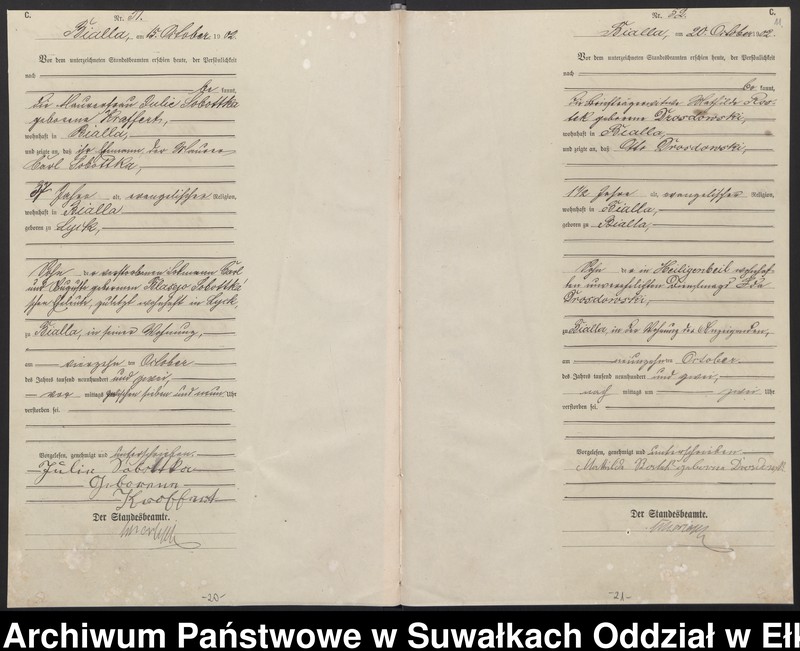 C.
Nr. 51.
Bialla, am 15. October 1902
Vor dem unterzeichneten Standesbeamten erschien heute, der Persönlichkeit
nach
be kannt,
die Maurerfrau Julie Sobottka
geborene Kraffert,
wohnhaft in Bialla,
und zeigte an, daß ihr Ehemann, der Maurer
Carl Sobottka,
37 Jahre alt, evangelischer Religion,
wohnhaft in Bialla
geboren zu Lyck,
Sohn der verstorbenen Carl
und Auguste geborenen Sobottka'
schen Eheleute, zuletzt wohnhaft in Lyck,
zu Bialla, in seiner Wohnung,
am vierzehn ten October
des Jahres tausend neunhundert und zwei,
vor mittags zwischen sieben und neun Uhr
verstorben sei.
Vorgelesen, genehmigt und unterschrieben.
Julie Sobottka
Geborenne
Kroffert
Der Standesbeamte.
-20-
C.
11
Nr. 52.
Bialla, am 20. October 1902
Vor dem unterzeichneten Standesbeamten erschien heute, der Persönlichkeit
nach
be kannt,
die Mathilde Ros-
tek geborene Drosdowski,
wohnhaft in Bialla,
und zeigte an, daß Otto Drosdowski,
1 1/2 Jahre alt, evangelischer Religion,
wohnhaft in Bialla,
geboren zu Bialla,
Sohn der in Heiligenbeil wohnhaf-
ten unverehelichten Dienstmagd
Drosdowski,
zu Bialla, in der Wohnung der Anzeigenden,
am neunzehn ten October
des Jahres tausend neunhundert und zwei,
nach mittags um zwei Uhr
verstorben sei.
Vorgelesen, genehmigt und unterschrieben
Mathilde Rostek geborene Drosdowski
Der Standesbeamte.
-21-
Archiwum Państwowe w Suwałkach Oddział w Ełk